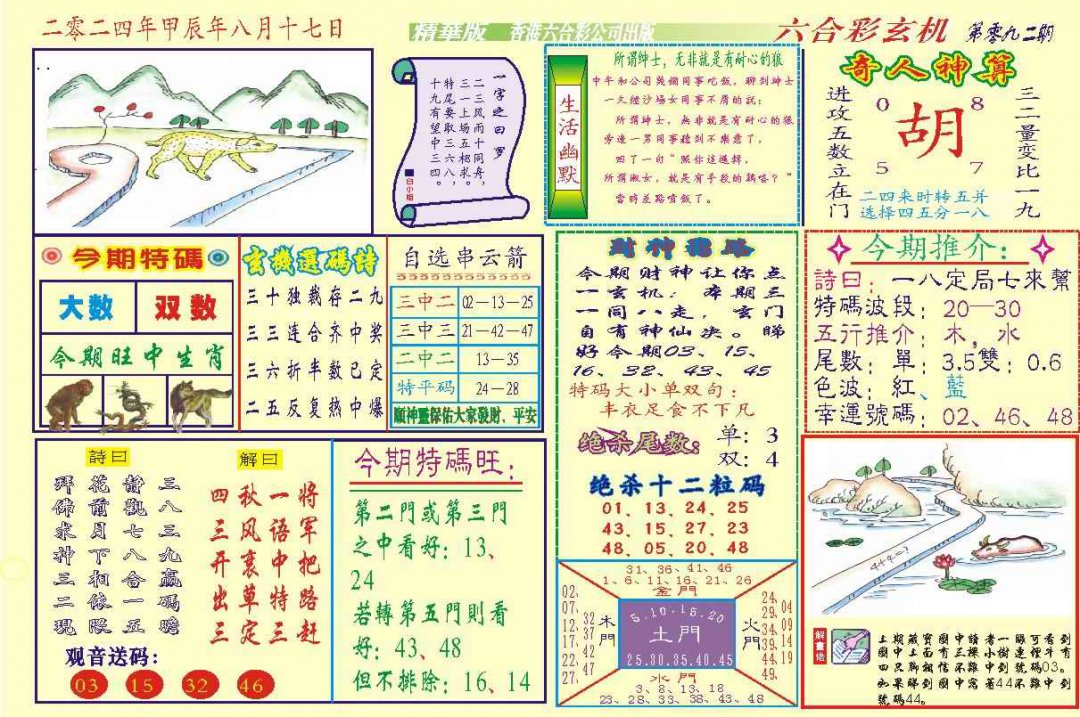 二零二四年甲辰年八月十七日
精華版 香港六合彩公司出版
六合彩玄机 第零九二期
一字之曰：罗
二三风雨十同舟，
三一上场五相求。
特尾要取三六八，
十九有望中三四。
白小姐
生活幽默
所謂紳士，无非就是有耐心的狼
中午和公司異櫚同事吃飯，聊到紳士
一久經沙場女同事不屑的說：
所謂紳士，無非就是有耐心的狼
旁邊一男同事聽到不樂意了，
回了一句"照你這邏輯，
所謂淑女，就是有手段的鷄咯？"
當時差點噴飯了。
奇人神算
进攻五数立在门
0 8
胡
5 7
三二量变比一九
二四来时转五并
选择四五分一八
今期特碼
大数 双数
今期旺中生肖
玄機選碼詩
三十独裁存二九
三三连合齐中奖
三六折半数已定
二五反复热中爆
自选串云箭
三中二 02—13—25
三中三 21—42—47
二中二 13—35
特平码 24—28
願神靈保佑大家發財、平安
今期财神让你点
一玄机：本期三
一同八走，玄门
自有神仙决。睇
好今期03、15、
16、32、43、45
特码大小单双句：
丰衣足食不下凡
绝杀尾数： 单：3
双：4
绝杀十二粒码
01、13、24、25
43、15、27、23
48、05、20、48
今期推介：
詩曰：一八定局七來幫
特碼波段：20—30
五行推介：木，水
尾數：單：3.5雙：0.6
色波：紅、藍
幸運號碼：02、46、48
詩曰
三八三九贏碼瞻
靜觀七八合一五
花前月下相依隈
拜佛求神三二現
解曰
将军把路赶
一语中特三
秋风裹草定
四三开出三
观音送码：
03 15 32 46
今期特碼旺：
第二門或第三門
之中看好：13、
24
若轉第五門則看
好：43、48
但不排除：16、14
31、36、41、46
1、6、11、16、21、26
金門
02、07、12、17、22、27、
32、37、42、47
木門
5.10.15.20
土門
25.30.35.40.45
火門
24、29、34、39、44、49
04、09、14、19
水門
3、8、13、18
23、28、33、38、43、48
4+4=?
解畫信
上期藏寶圖中請者一眼可看到
圖中上面有三棵小樹連徑牛有
四只脚相信不難中到號碼03。
如果睇到圖中寫著44不難中到
號碼44。